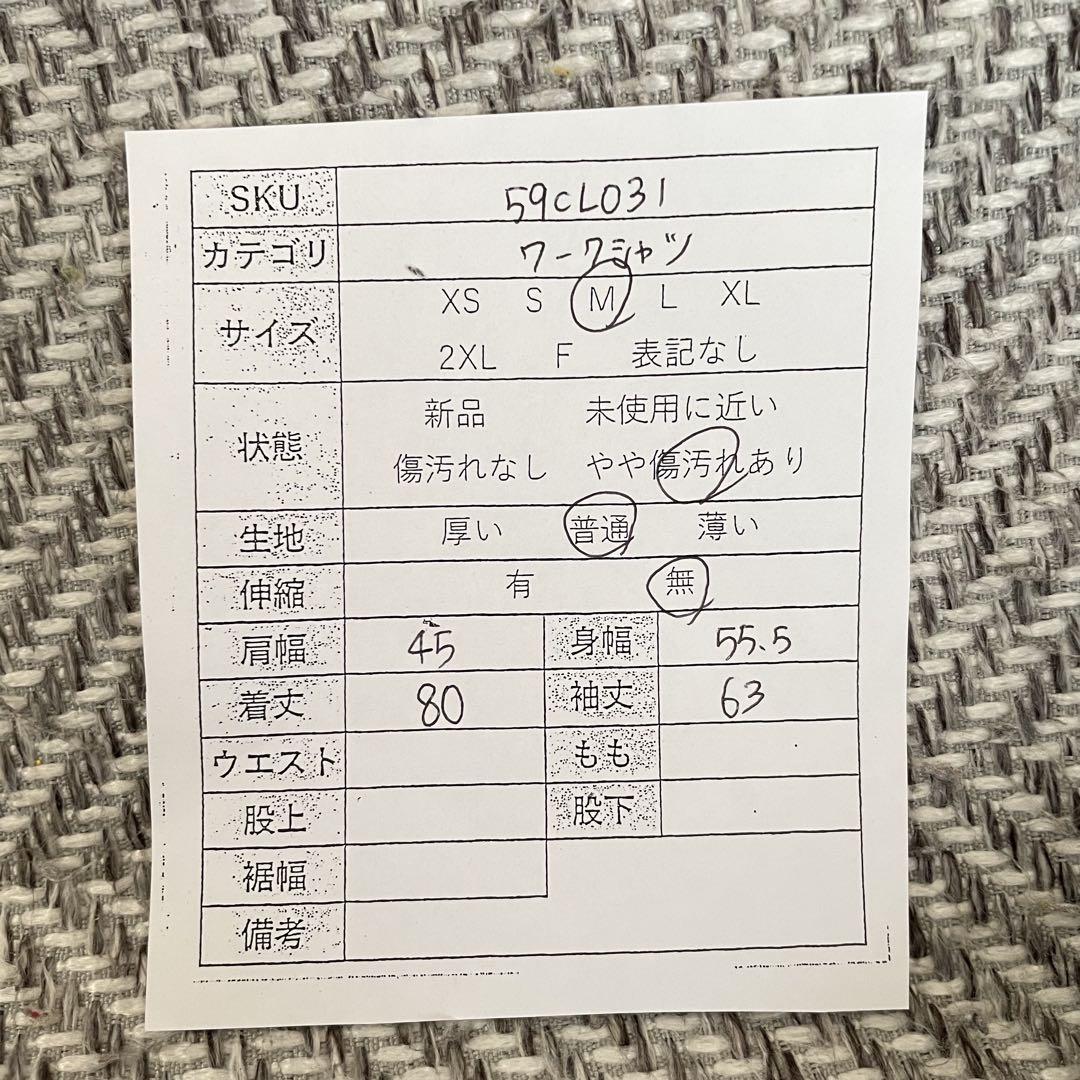 SKU 59CL031
カテゴリ ワークシャツ
サイズ XS S M L XL
2XL F 表記なし
状態 新品 未使用に近い
傷汚れなし やや傷汚れあり
生地 厚い 普通 薄い
伸縮 有 無
肩幅 45 身幅 55.5
着丈 80 袖丈 63
ウエスト もも
股上 股下
裾幅
備考